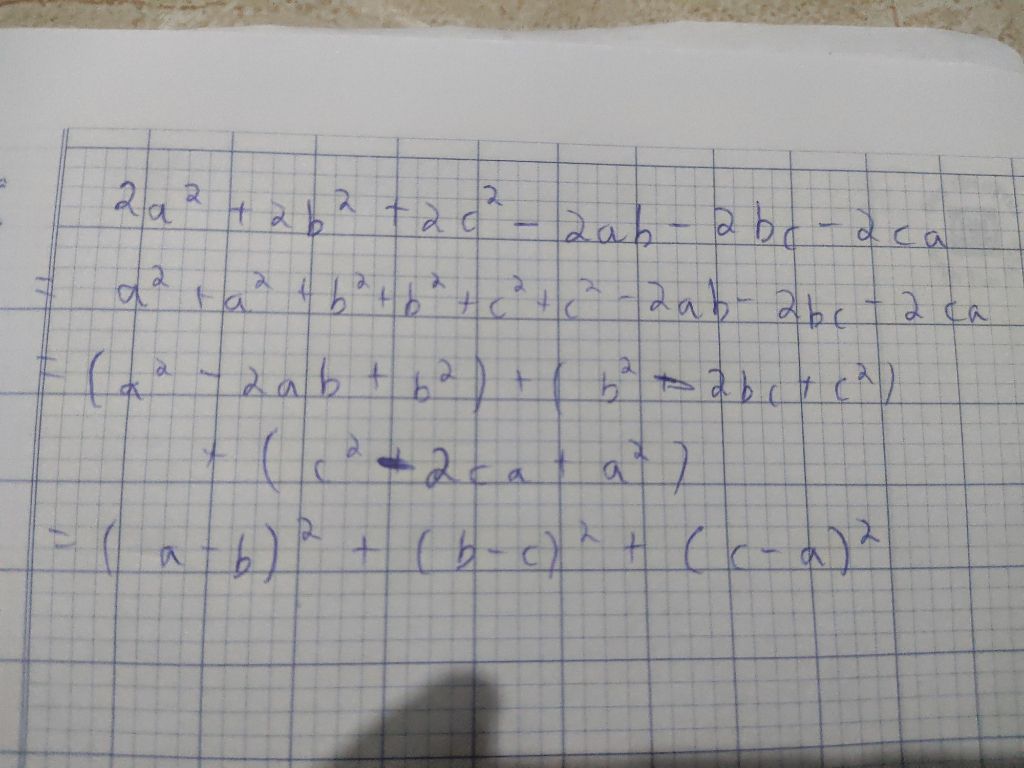 2a² + 2b² + 2c² - 2ab - 2bc - 2ca
= a² + a² + b² + b² + c² + c² - 2ab - 2bc - 2ca
= (a² - 2ab + b²) + (b² - 2bc + c²)
+ (c² - 2ca + a²)
= (a - b)² + (b - c)² + (c - a)²